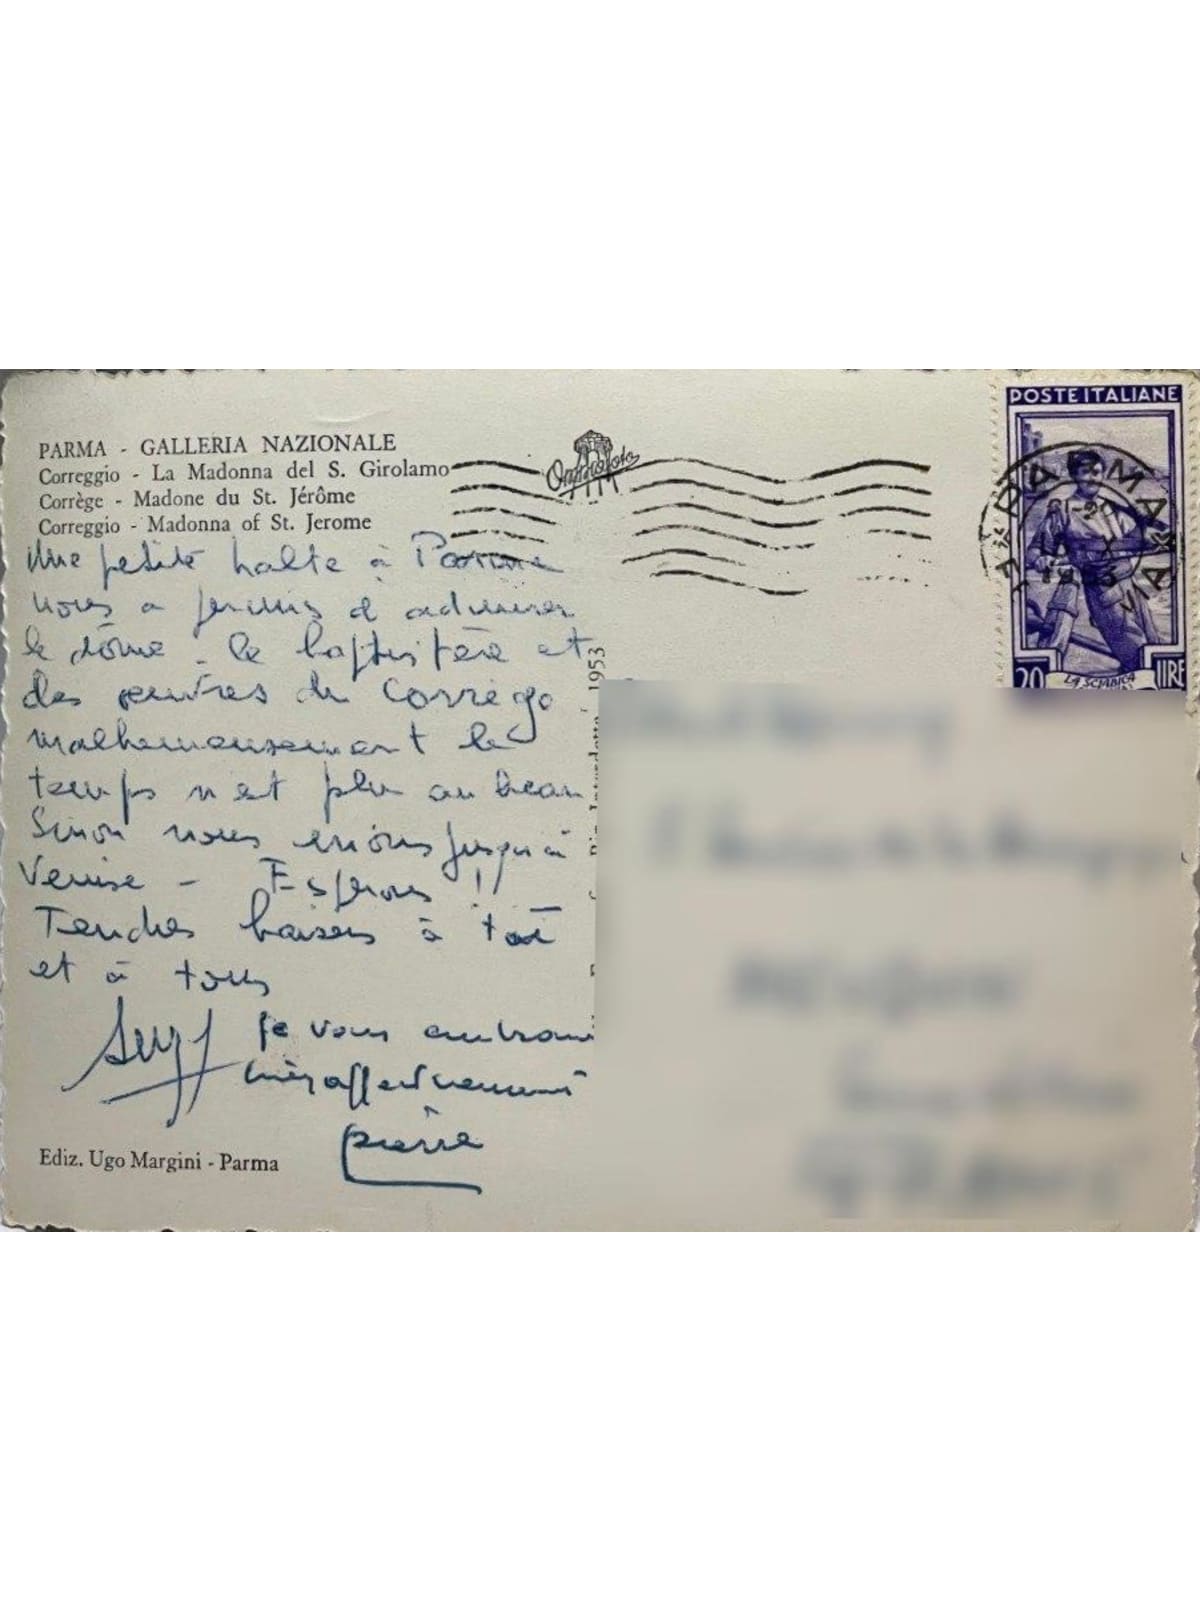 PARMA - GALLERIA NAZIONALE
Correggio - La Madonna del S. Girolamo
Corrège - Madone du St. Jérôme
Correggio - Madonna of St. Jerome
Une petite halte à Parme
nous a permis d admirer
le dôme - le baptistère et
des peintres du Corrège
malheureusement le
temps n'est plus au beau
Sinon nous irions jusqu'à
Venise - Espérons !
Tendres baisers à toi
et à tous
Suzy
je vous embrasse
très affectueusement
Pierre
Ediz. Ugo Margini - Parma
Omniafoto
1953
POSTE ITALIANE
PARMA
1953
20 LIRE
LA SCIABICA